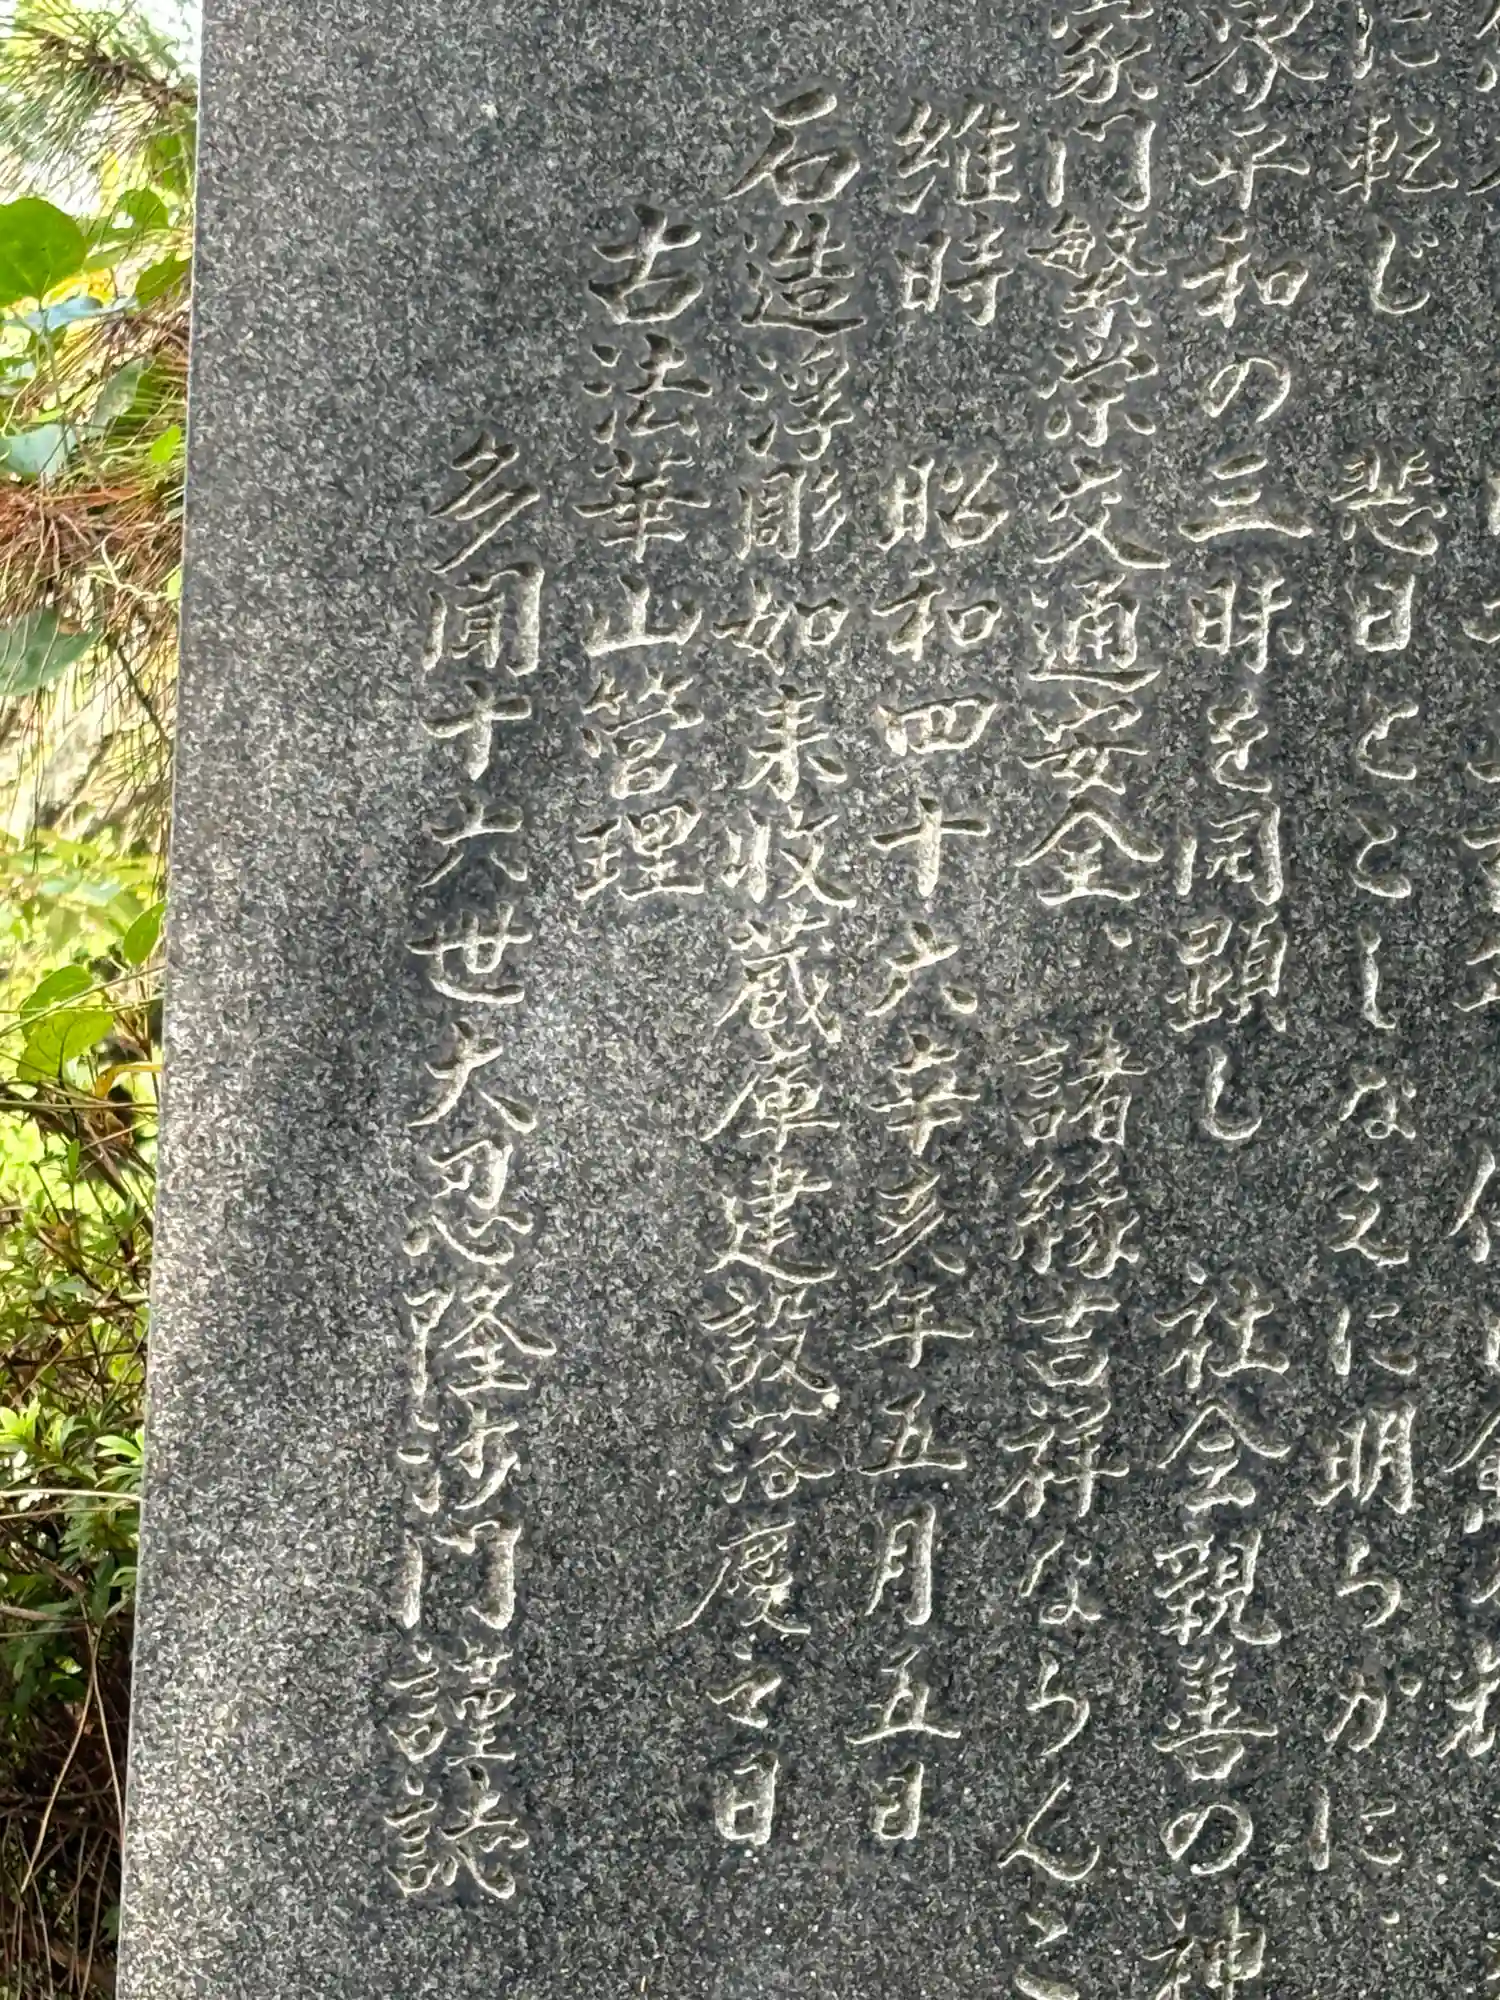 に転じ　悲日とことしなえに明らかに、
界平和の三昧を同顕し　社会親善の神
家門繁栄交通安全、諸縁吉祥ならんこ
維時　昭和四十六辛亥年五月五日
石造浮彫如来收蔵庫建設落慶之日
古法華山管理
多聞十六世大忍隆沙門謹誌